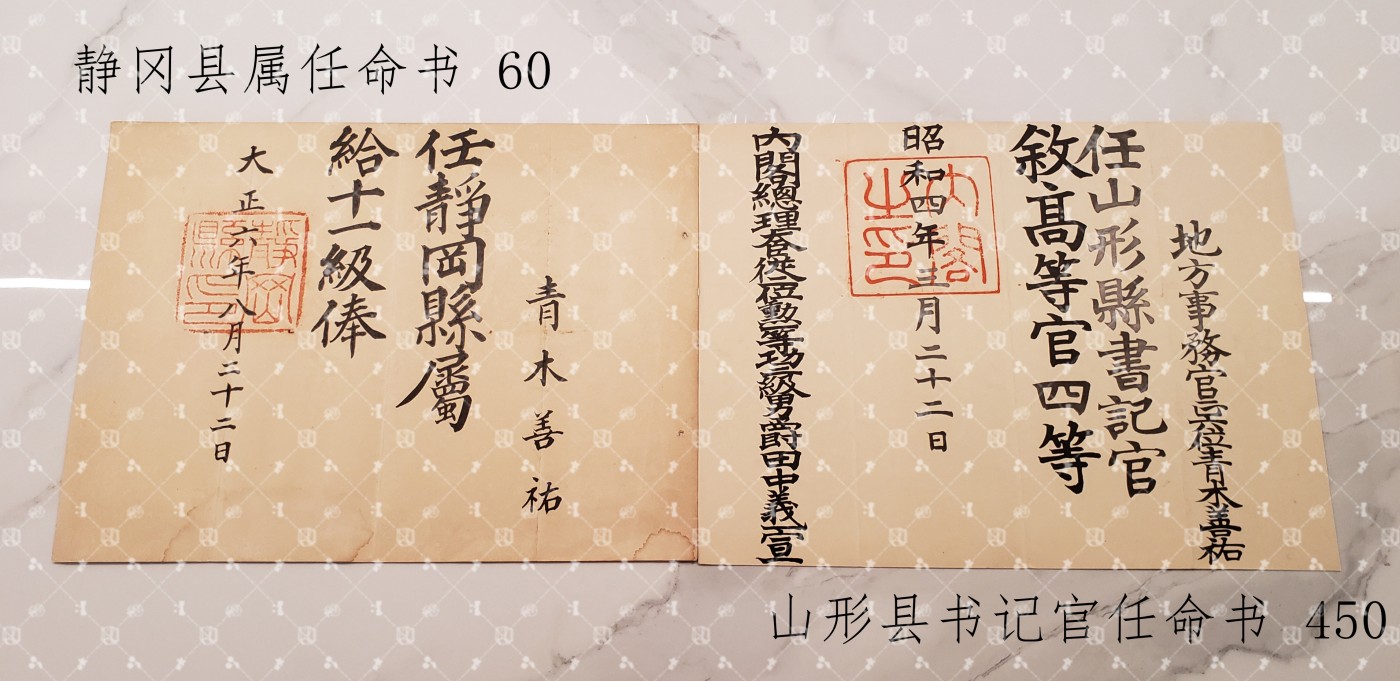 静冈县属任命书 60
青木善祐
任靜岡縣屬
給十一級俸
大正六年八月二十二日
靜岡縣印
地方事務官正六位青木善祐
任山形縣書記官
敘高等官四等
昭和四年三月二十二日
内閣之印
内閣總理大臣從二位勳一等功三級男爵田中義一宣
山形县书记官任命书 450